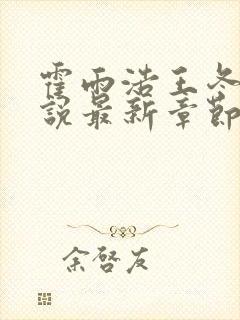 霍雨浩王冬
說最新章節
余啓友